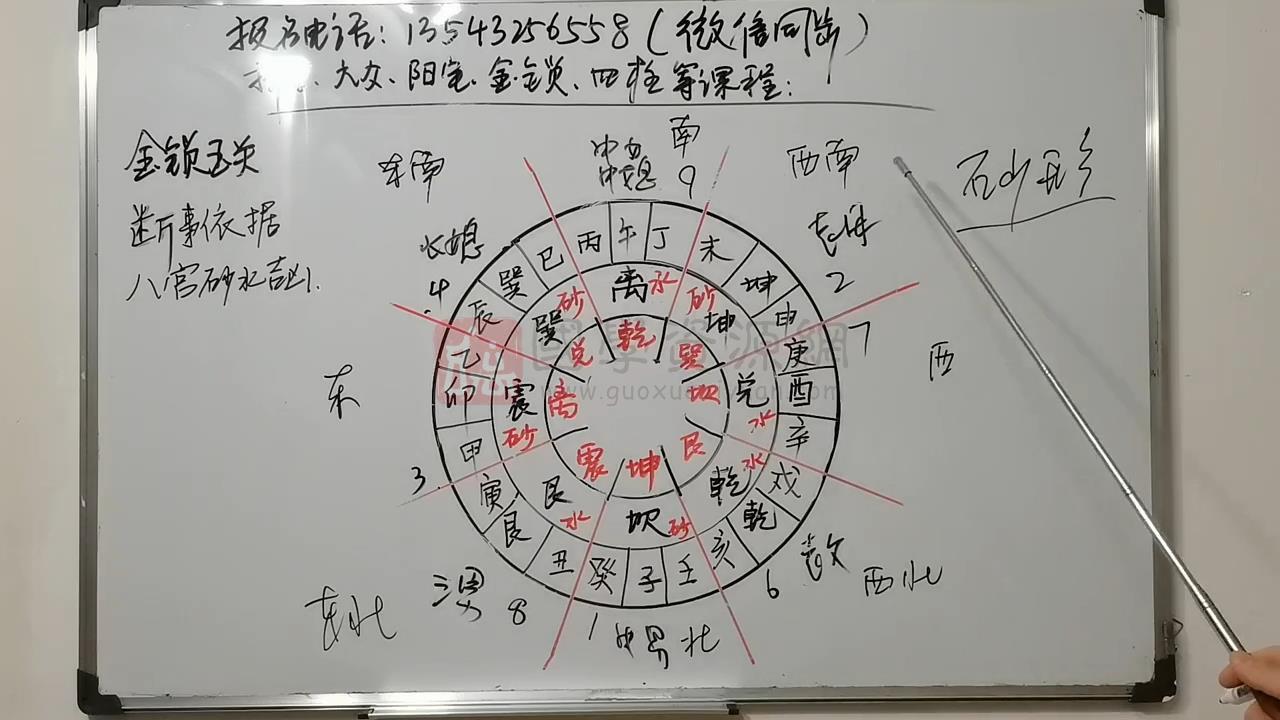 报名电话：13543256558（微信同步）
大六、阳宅、金锁、四柱等课程：
金锁玉关
断事依据
八宫砂水吉凶.
砂形
东南
中女
中媳
南
9
西南
长媳
4
老母
2
东
3
西
7
东北
三男
8
1
中男
北
老父
6
西北
巳 丙 午 丁 未 坤 申 庚 酉 辛 戌 乾 亥 壬 子 癸 丑 艮 寅 甲 卯 乙 辰 巽
离 水
坤 砂
兑 水
乾 水
坎 砂
艮 水
震 砂
巽 砂
乾 巽 坎 艮 坤 震 离 兑
國學資源網
www.guoxue